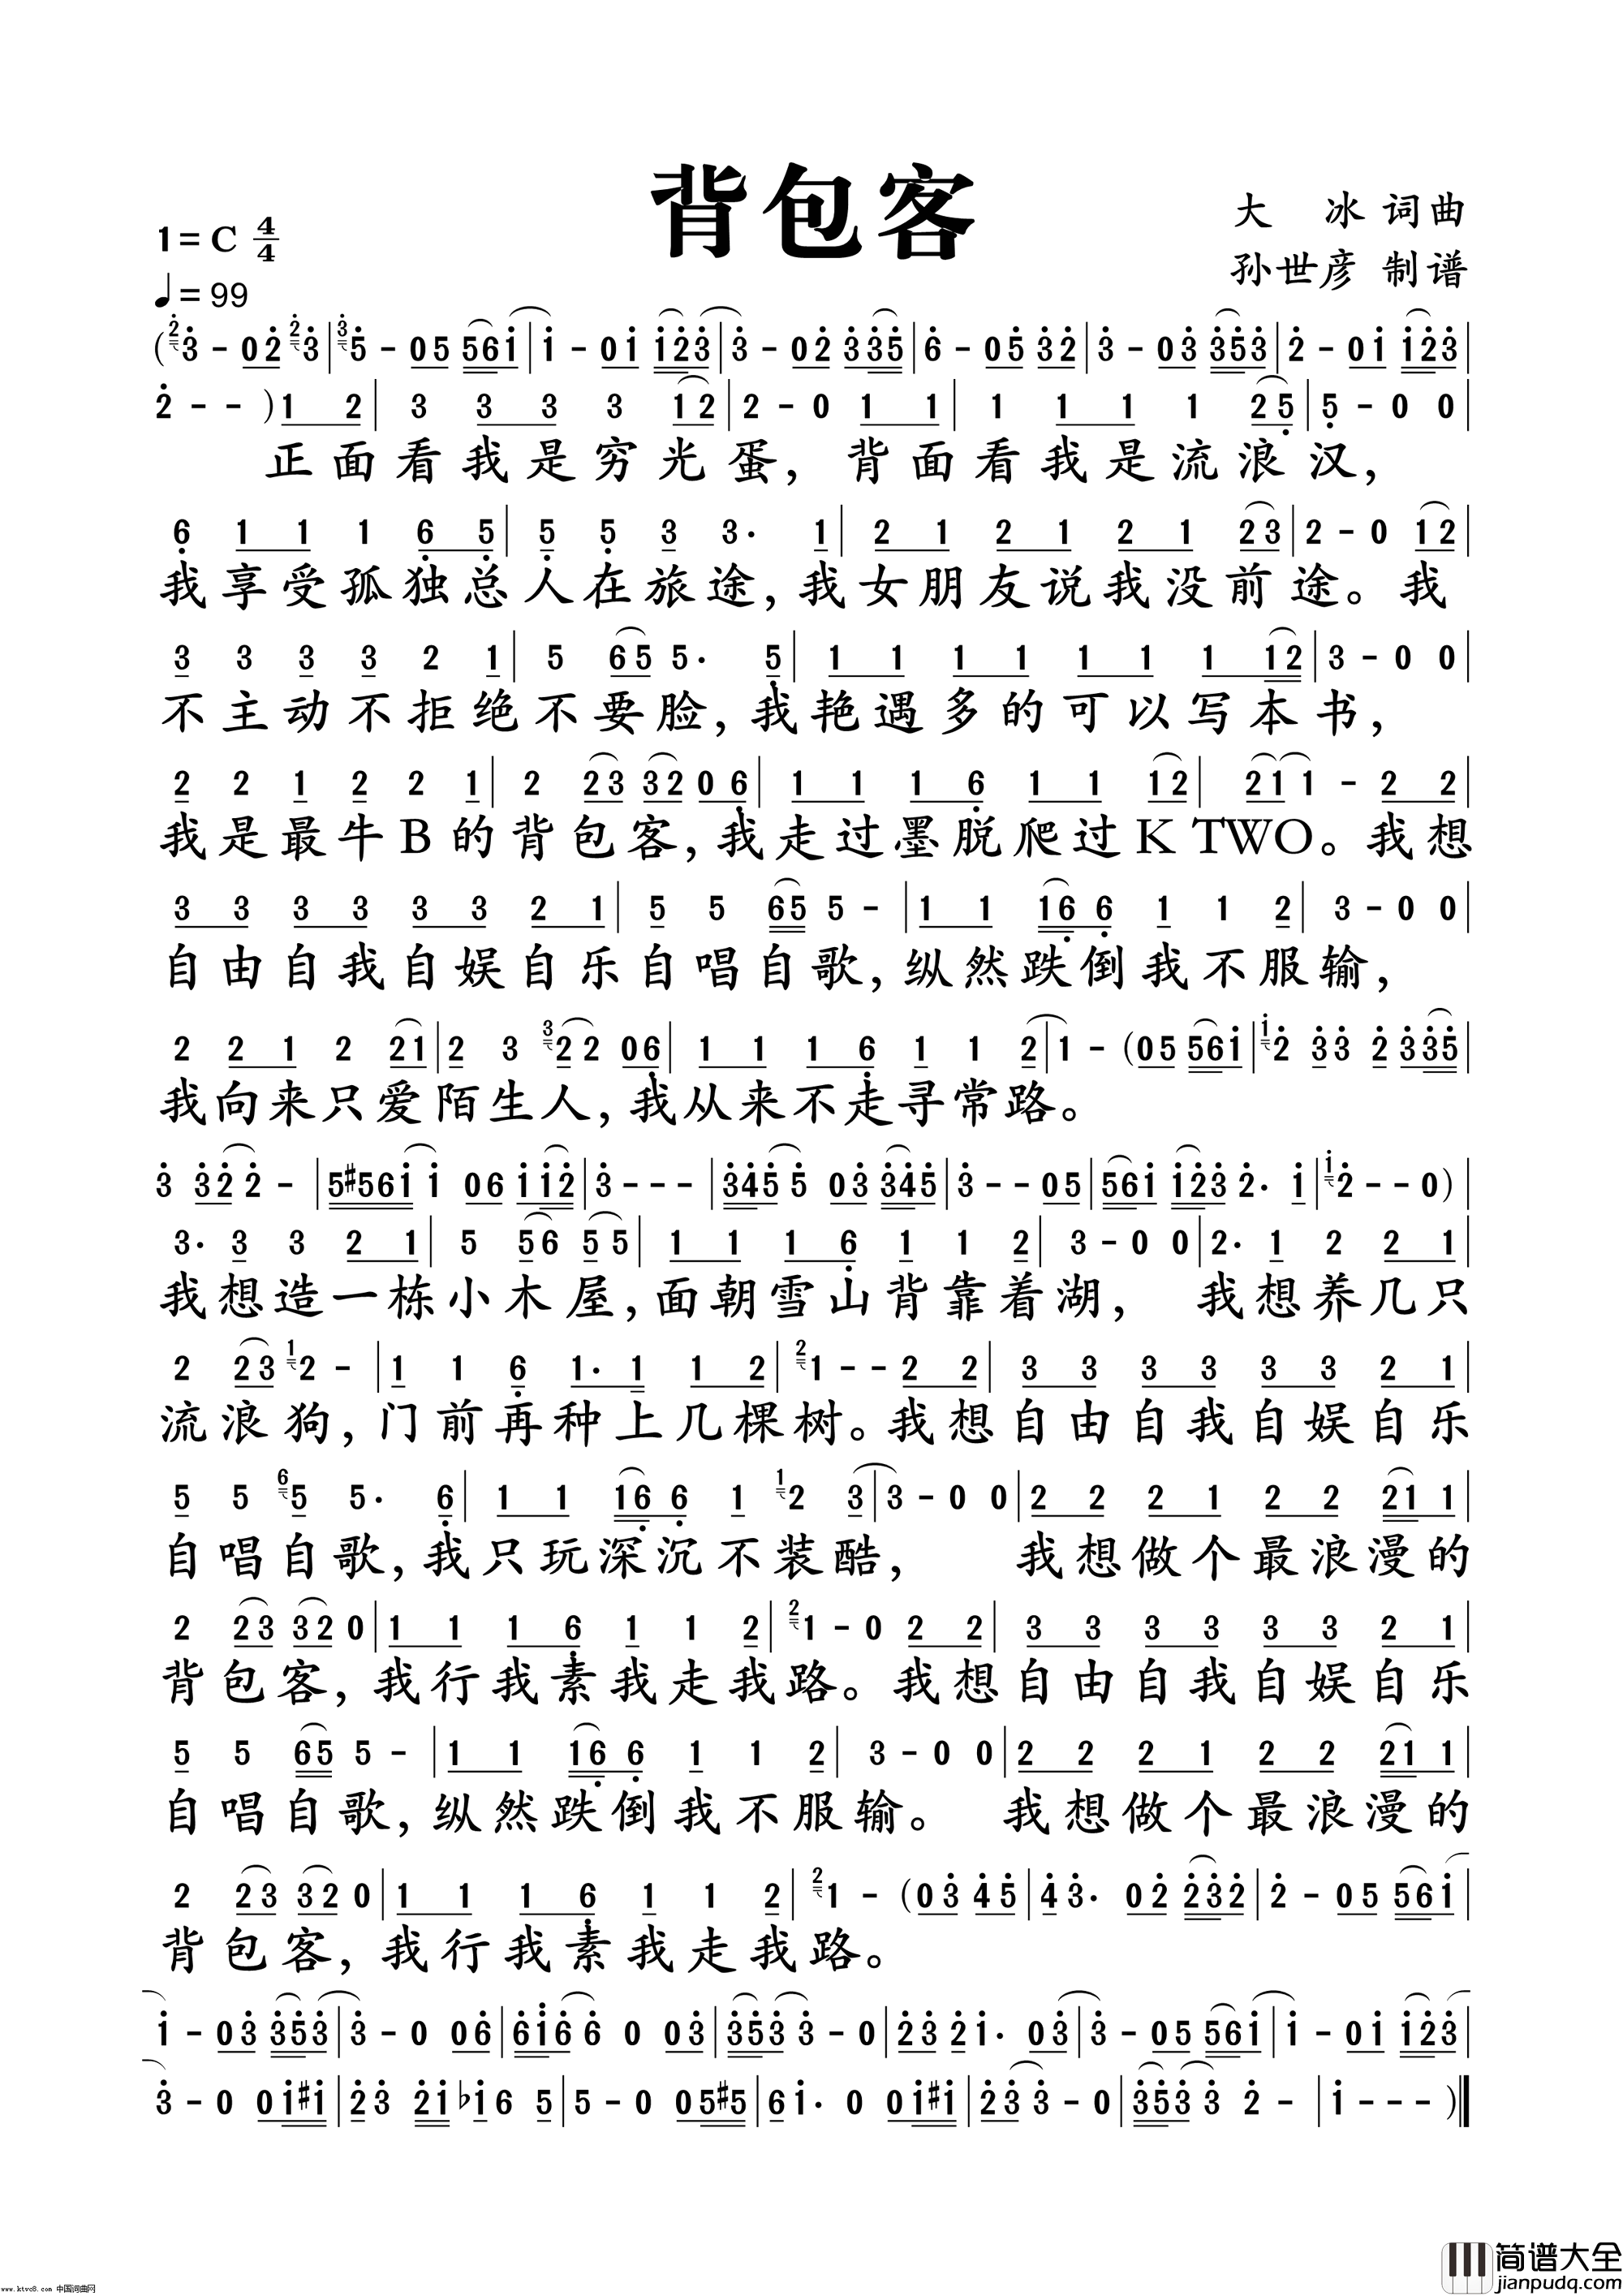 背包客
1=C 4/4
大 冰 词曲
孙世彦 制谱
♩=99
(3 - 0 2 3 | 5 - 0 5 5 6 1 | 1 - 0 1 1 2 3 | 3 - 0 2 3 3 5 | 6 - 0 5 3 2 | 3 - 0 3 3 5 3 | 2 - 0 1 1 2 3 |
2 - - ) 1 2 | 3 3 3 3 1 2 | 2 - 0 1 1 | 1 1 1 1 2 5 | 5 - 0 0 |
正面看我是穷光蛋，背面看我是流浪汉，
6 1 1 1 6 5 | 5 5 3 3· 1 | 2 1 2 1 2 1 2 3 | 2 - 0 1 2 |
我享受孤独总人在旅途，我女朋友说我没前途。我
3 3 3 3 2 1 | 5 6 5 5· 5 | 1 1 1 1 1 1 1 1 2 | 3 - 0 0 |
不主动不拒绝不要脸，我艳遇多的可以写本书，
2 2 1 2 2 1 | 2 2 3 3 2 0 6 | 1 1 1 6 1 1 1 2 | 2 1 1 - 2 2 |
我是最牛B的背包客，我走过墨脱爬过K TWO。我想
3 3 3 3 3 3 2 1 | 5 5 6 5 5 - | 1 1 1 6 6 1 1 2 | 3 - 0 0 |
自由自我自娱自乐自唱自歌，纵然跌倒我不服输，
2 2 1 2 2 1 | 2 3 2 2 0 6 | 1 1 1 6 1 1 2 | 1 - (0 5 5 6 1 | 2 3 3 2 3 3 5 |
我向来只爱陌生人，我从来不走寻常路。
3 3 2 2 - | 5 #5 6 1 1 0 6 1 1 2 | 3 - - - | 3 4 5 5 0 3 3 4 5 | 3 - - 0 5 | 5 6 1 1 2 3 2· 1 | 2 - - 0 ) |
3· 3 3 2 1 | 5 5 6 5 5 | 1 1 1 6 1 1 2 | 3 - 0 0 | 2· 1 2 2 1 |
我想造一栋小木屋，面朝雪山背靠着湖， 我想养几只
2 2 3 2 - | 1 1 6 1· 1 1 2 | 1 - - 2 2 | 3 3 3 3 3 3 2 1 |
流浪狗，门前再种上几棵树。我想自由自我自娱自乐
5 5 5 5· 6 | 1 1 1 6 6 1 2 3 | 3 - 0 0 | 2 2 2 1 2 2 2 1 1 |
自唱自歌，我只玩深沉不装酷， 我想做个最浪漫的
2 2 3 3 2 0 | 1 1 1 6 1 1 2 | 1 - 0 2 2 | 3 3 3 3 3 3 2 1 |
背包客，我行我素我走我路。我想自由自我自娱自乐
5 5 6 5 5 - | 1 1 1 6 6 1 1 2 | 3 - 0 0 | 2 2 2 1 2 2 2 1 1 |
自唱自歌，纵然跌倒我不服输。 我想做个最浪漫的
2 2 3 3 2 0 | 1 1 1 6 1 1 2 | 1 - (0 3 4 5 | 4 3· 0 2 2 3 2 | 2 - 0 5 5 6 1 |
背包客，我行我素我走我路。
1 - 0 3 3 5 3 | 3 - 0 0 6 | 6 1 6 6 0 0 3 | 3 5 3 3 - 0 | 2 3 2 1· 0 3 | 3 - 0 5 5 6 1 | 1 - 0 1 1 2 3 |
3 - 0 0 1 #1 | 2 3 2 1 b1 6 5 | 5 - 0 0 5 #5 | 6 1· 0 0 1 #1 | 2 3 3 - 0 | 3 5 3 3 2 - | 1 - - - )
www.ktvc8.com 中国词曲网
简谱大全
jianpudq.com